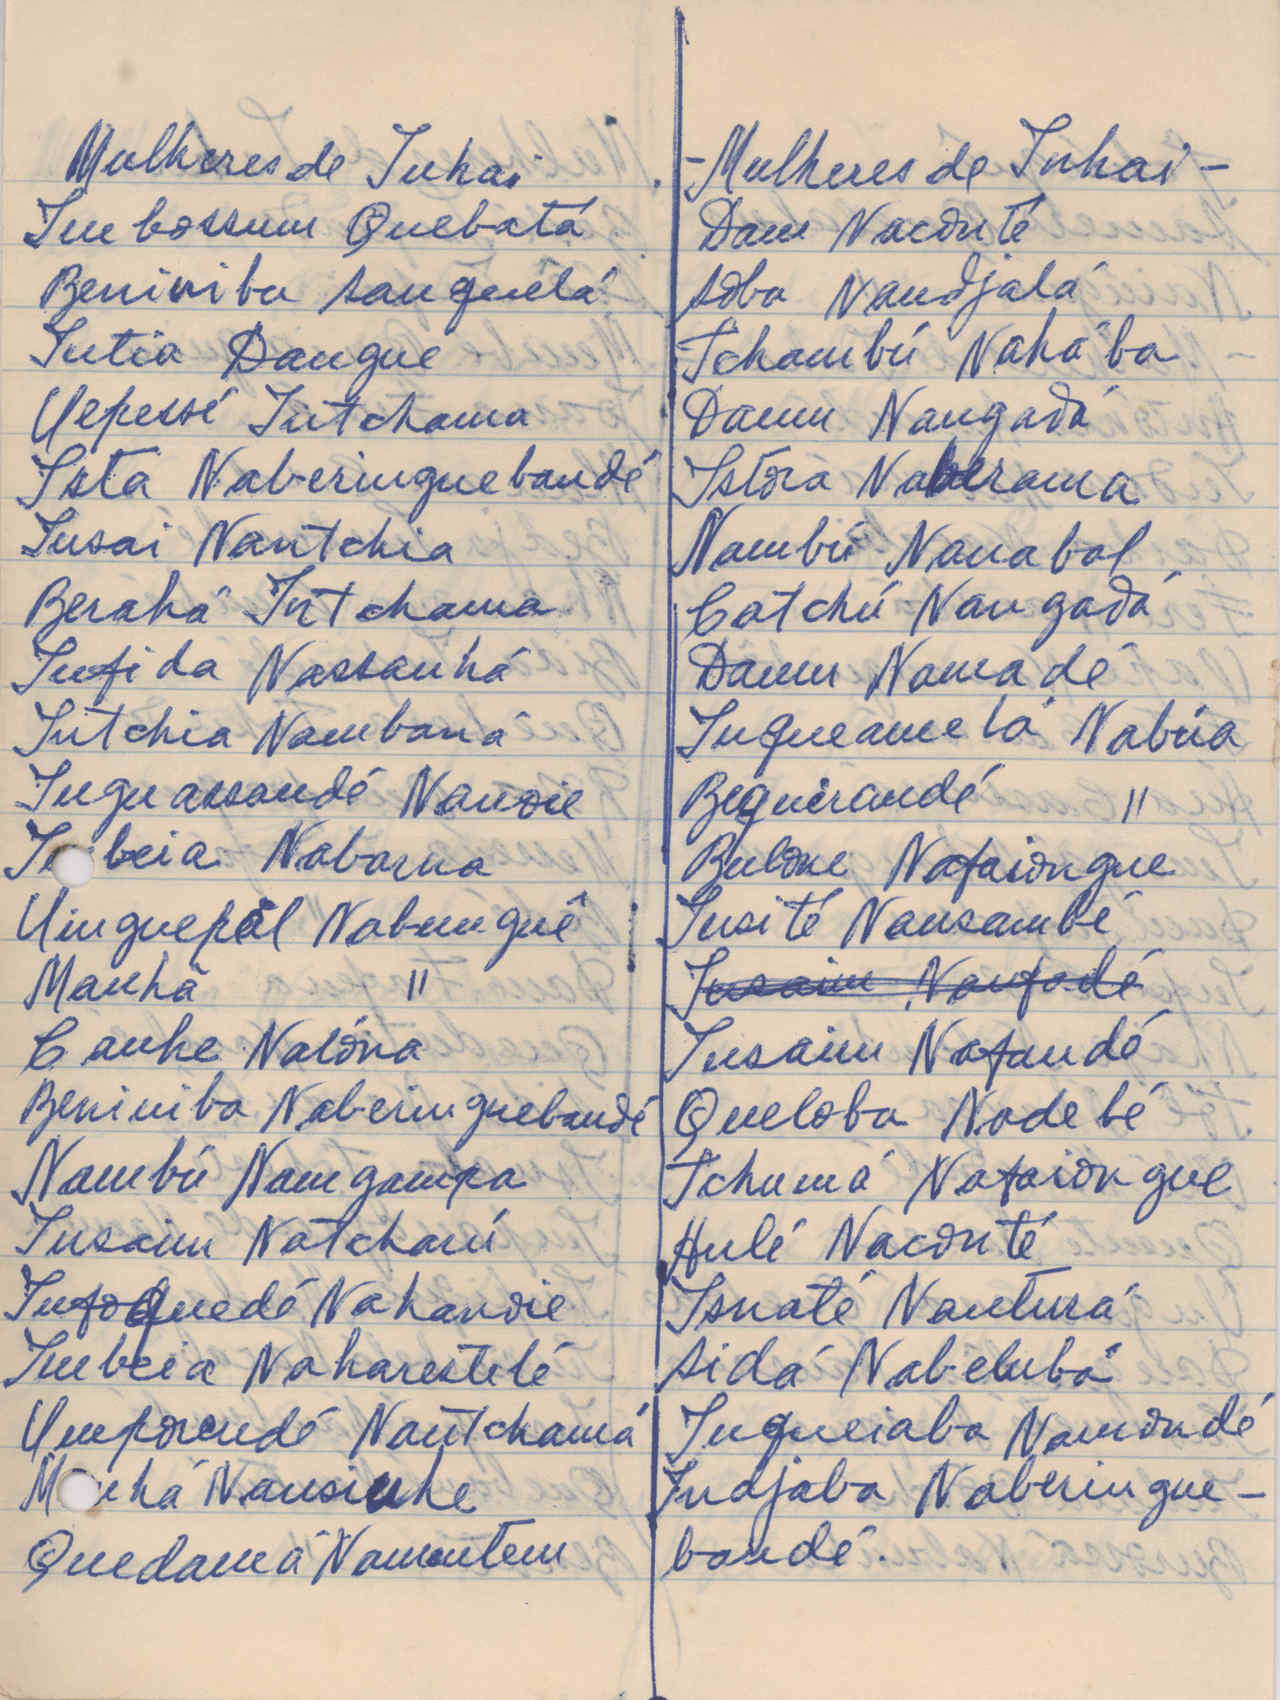 Mulheres de Inhai
Imbossum Quebatá
Beniniba Sanquelá
Intia Dangue
Uepessé Intchama
Ista Naberinguebandé
Insai Nantchia
Berahá Intchama
Infida Nassanhá
Intchia Nambaná
Inguassandé Nandie
beia Nabarna
Uinguepal Nabunguê
Manhã "
Canhe Nalóna
Beniniba Naberinguebandé
Nambú Namgampa
Insaim Natchamú
Infoquedé Nahandie
Imbeia Naharestelé
Umporendé Nantchamá
M nhá Nansinhe
Quedamá Namontem
- Mulheres de Inhai -
Dam Nacónté
Sóba Nandjalá
Tchambú Nahába
Damn Nangadá
Istóra Naberama
Nambú Nanabal
Catchú Nangadá
Damn Namadé
Inqueamelá Nabúa
Bequerandé "
Bulóne Nafaiongue
Insité Nansambé
Insaim Nanfadé
Insaim Nafandé
Queloba Nadebé
Tchumá Nafaiongue
Hulé Nacónté
Isnaté Nanturá
Sidá Nabelubá
Inqueiaba Namondé
Indjaba Naberingue-
bandé.